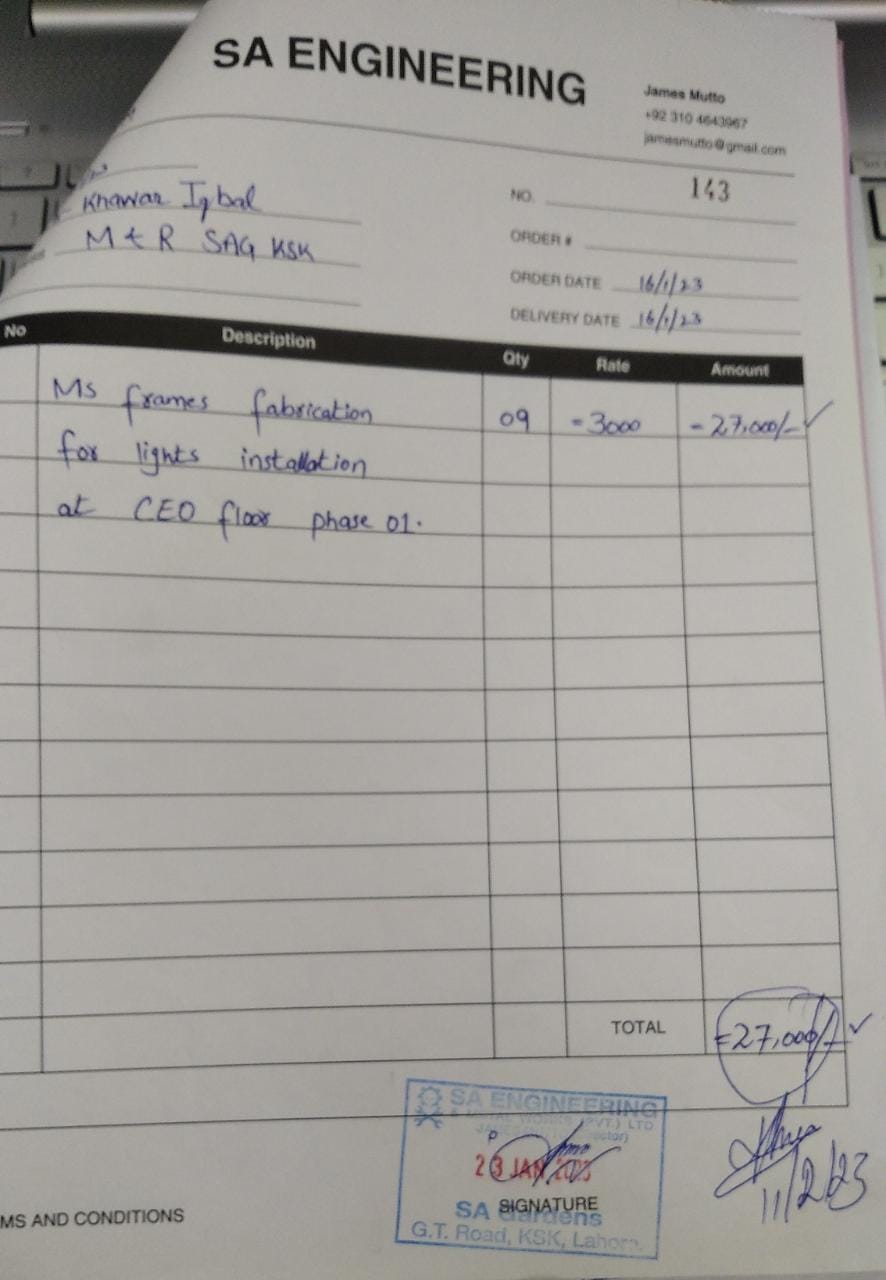 SA ENGINEERING
James Mutto
+92 310 4643967
jamesmutto@gmail.com
Khawar Iqbal
M & R SAG KSK
NO. 143
ORDER #
ORDER DATE 16/1/23
DELIVERY DATE 16/1/23
No Description Qty Rate Amount
Ms frames fabrication 09 =3000 =27,000/-
for lights installation
at CEO floor phase 01.
TOTAL =27,000/-
SA ENGINEERING
WORKS (PVT.) LTD
23 JAN 2023
SIGNATURE
SA Gardens
G.T. Road, KSK, Lahore.
11/2/23
MS AND CONDITIONS